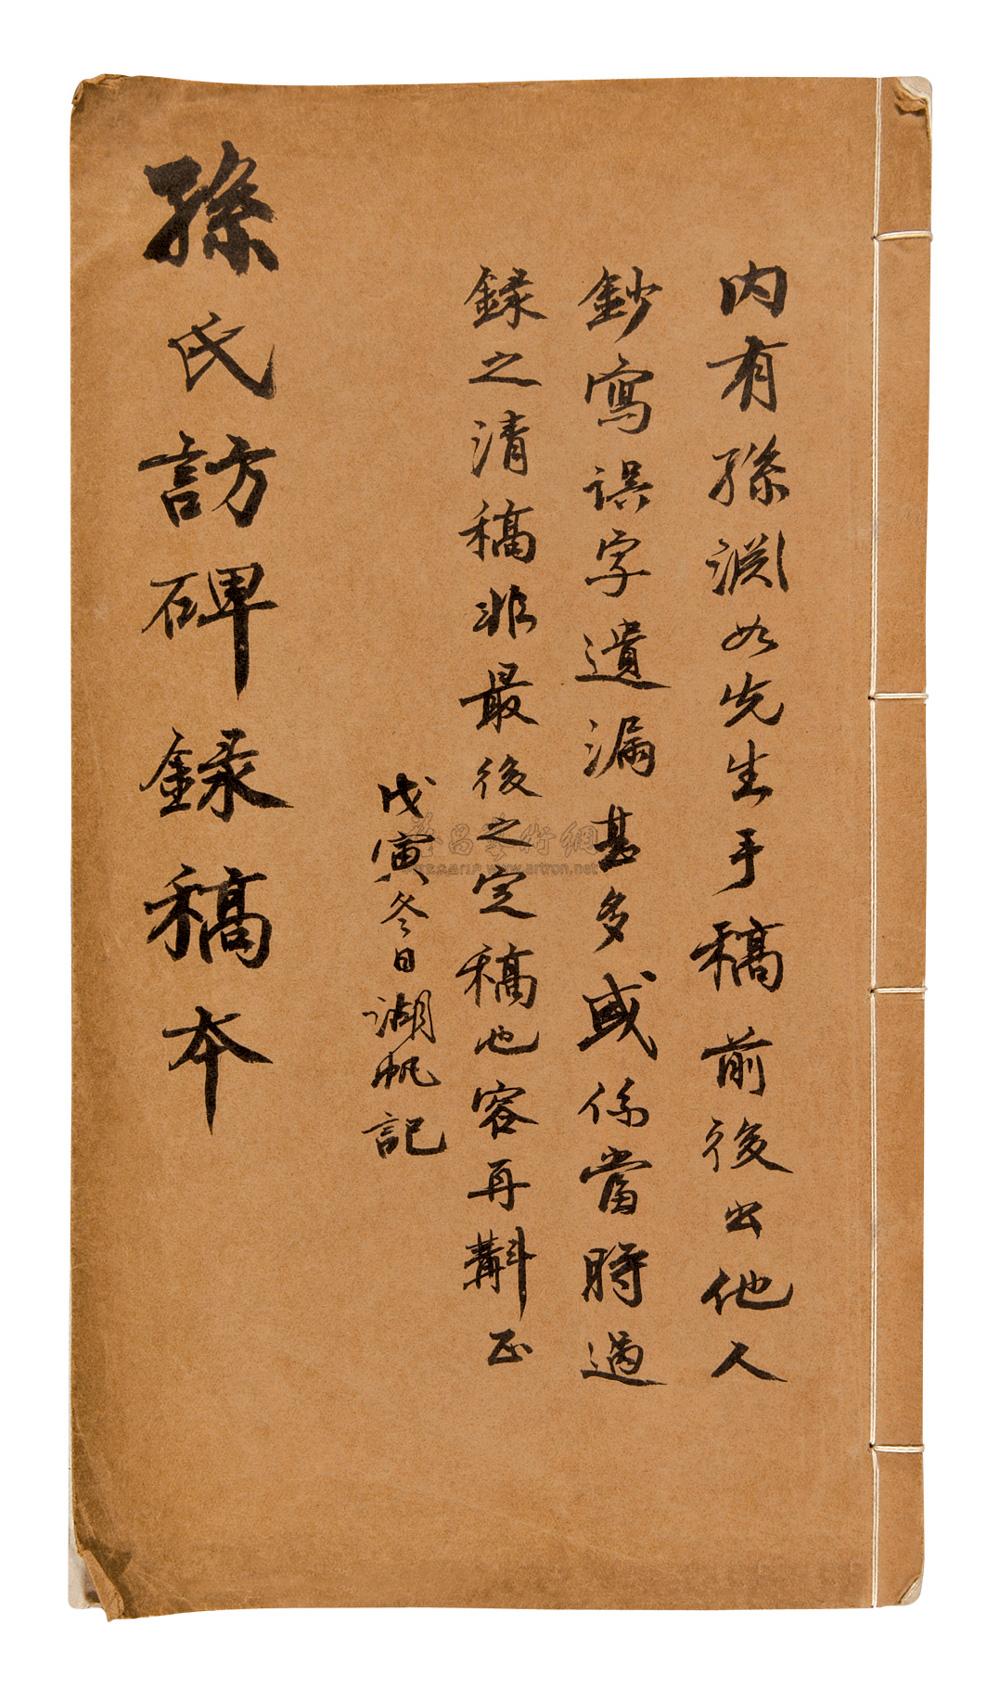 内有孫淵如先生手稿前後出他人
鈔寫誤字遺漏甚多或係當時過
録之清稿非最後之定稿也容再斠正
戊寅冬日湖帆記
孫氏訪碑録稿本
www.artron.net